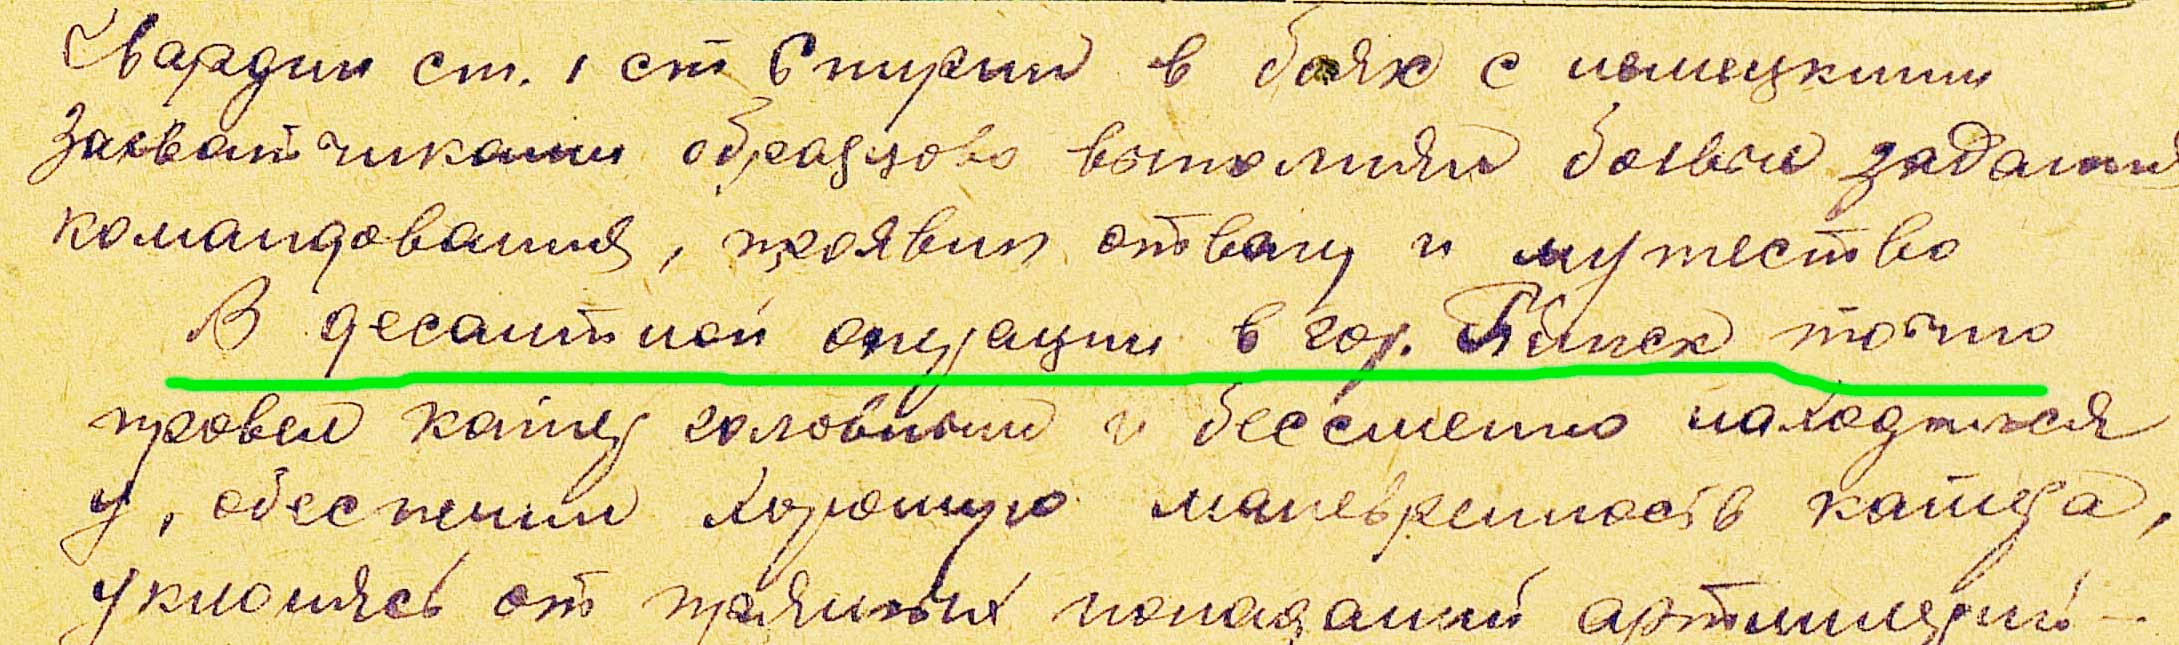 Гвардии ст. 1 ст Спирин в боях с немецкими
захватчиками образцово выполнял боевые задания
командования, проявил отвагу и мужество
В десантной операции в гор. Пинск точно
провел катер головным и бессменно находился
у, обеспечил хорошую маневренность катера,
уклоняясь от прямых попаданий артиллерий-